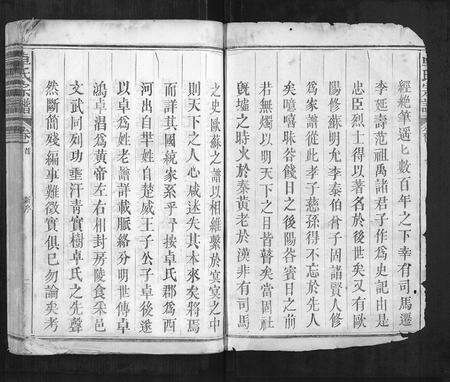 經絶筆遥遥數百年之下幸有司馬遷
李延壽范祖禹諸君子作為史記由是
忠臣烈士得以著名於後世矣又有歐
陽修蘇明允李泰伯曾子固諸賢人修
為家譜從此孝子慈孫得不忘於先人
矣噫嘻昧谷餞日之後陽谷賓日之前
若無燭以明天下之目皆瞽矣當固社
既墟之時火於秦黄老於漢非有司馬
之史歐蘇之譜以相維繫於宴宴之中
則天下之人心咸迷失其本來矣將焉
而詳其國統家系乎兮按卓氏郡為西
河出自芈姓自楚威王子公子卓後遂
以卓為姓老譜詳載脈絡分明世傳卓
鴻卓淐為黄帝左右相封房陵食采邑
文武同列功垂汗青實樹卓氏之先聲
然斷簡殘編事難徵實俱已勿論矣考
卓氏宗譜